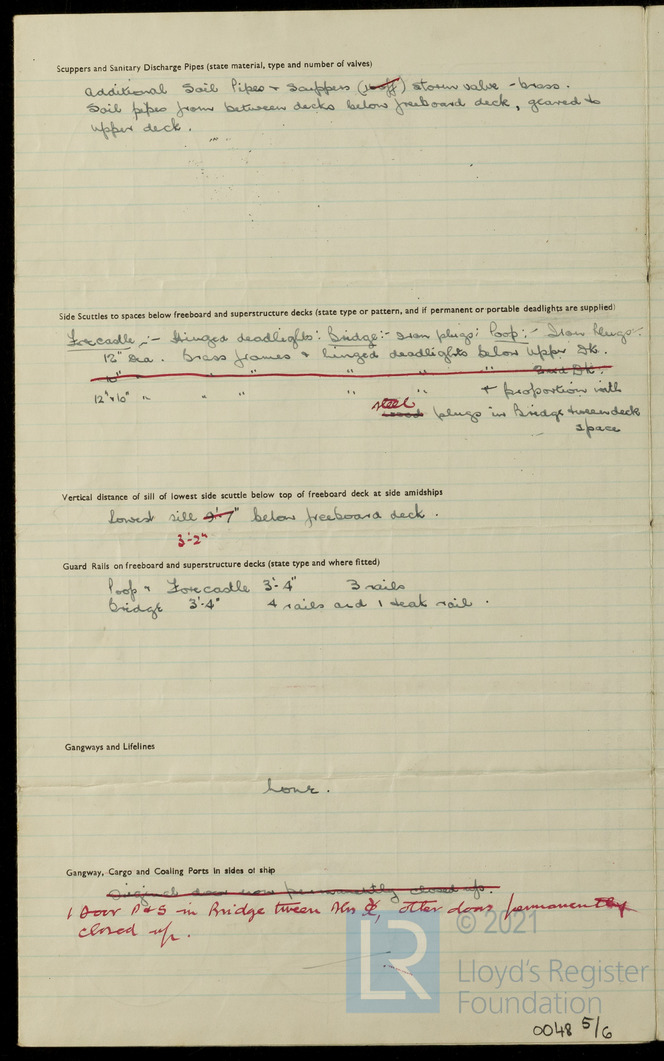 Scuppers and Sanitary Discharge Pipes (state material, type and number of valves)
Additional Soil Pipes + Scuppers (10 off) storm valve - brass.
Soil pipes from between decks below freeboard deck, geared to
upper deck.
Side Scuttles to spaces below freeboard and superstructure decks (state type or pattern, and if permanent or portable deadlights are supplied)
Forecastle :- Hinged deadlights: Bridge:- Iron plugs: Poop:- Iron Plugs.
12" Dia. Brass frames + hinged deadlights below Upper Dk.
10" " " " " " 2nd Dk.
12" + 10" " " " " " + proportion with
steel plugs in Bridge tween deck
space
Vertical distance of sill of lowest side scuttle below top of freeboard deck at side amidships
Lowest sill 3'-7" below freeboard deck.
3'-2"
Guard Rails on freeboard and superstructure decks (state type and where fitted)
Poop + Forecastle 3'-4" 3 rails
Bridge 3'-4" 4 rails and 1 teak rail.
Gangways and Lifelines
none.
Gangway, Cargo and Coaling Ports in sides of ship
Original door now permanently closed up.
1 Door P & S in Bridge tween Dks, other doors permanently
closed up.
© 2021
LR
Lloyd's Register
Foundation
0048 5/6